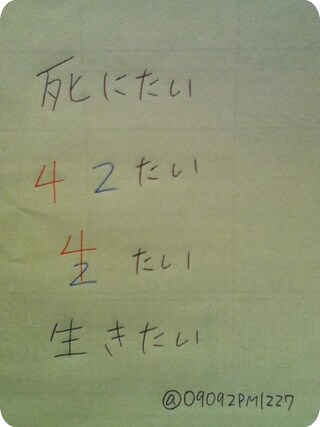 死にたい
42たい
生たい
生きたい
@09092PM1227